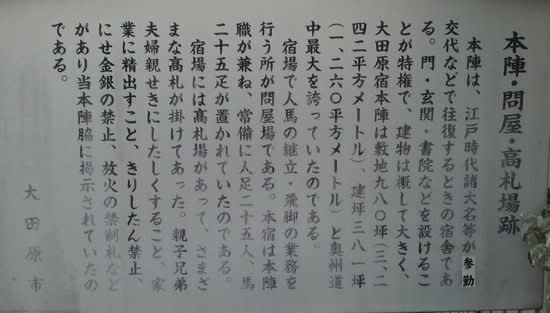 本陣・問屋・高札場跡
本陣は、江戸時代諸大名等が参勤
交代などで往復するときの宿舎であ
る。門・玄関・書院などを設けるこ
とが特権で、建物は概して大きく、
大田原宿本陣は敷地九八〇坪(三、二
四二平方メートル)、建坪三八一坪
(一、二六〇平方メートル)と奥州道
中最大を誇っていたのである。
宿場で人馬の継立・飛脚の業務を
行う所が問屋場である。本宿は本陣
職が兼ね、常備に人足二十五人、馬
二十五疋が置かれていたのである。
宿場には髙札場があって、さまざ
まな髙札が掛けてあった。親子兄弟
夫婦親せきにしたしくすること、家
業に精出すこと、きりしたん禁止、
にせ金銀の禁止、放火の禁制札など
があり当本陣脇に掲示されていたの
である。
大田原市